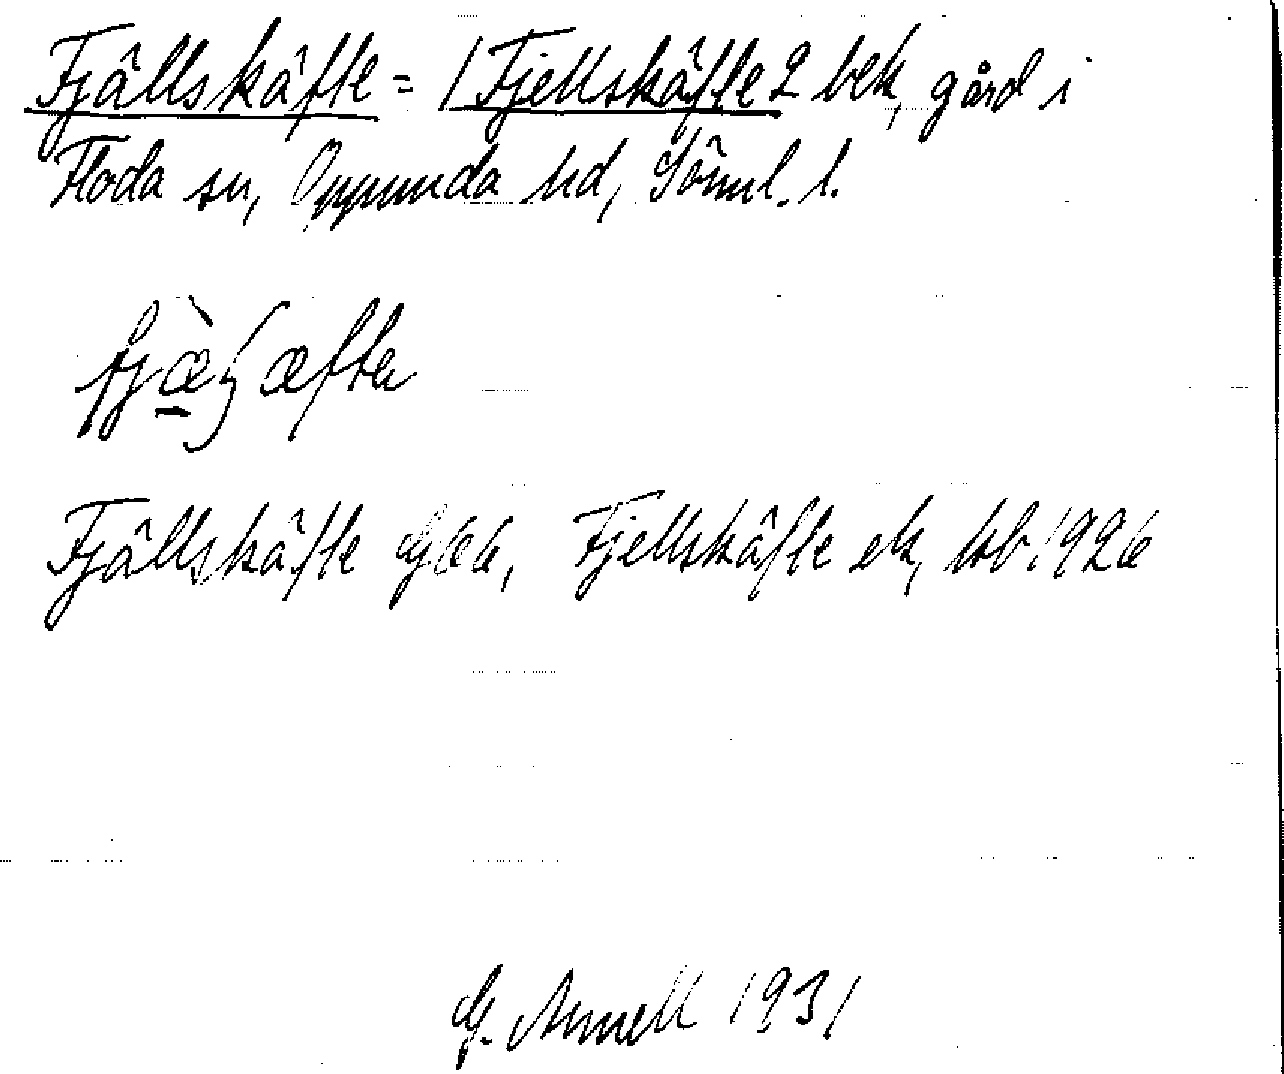 Fjällskäfte = / Fjellskäfte 2 bek, gård i
Floda sn, Oppunda hd, Söml. l.
fjæ̀ʃæfta
Fjällskäfte GEK, Fjellskäfte ek, kb. 1926
G. Annell 1931